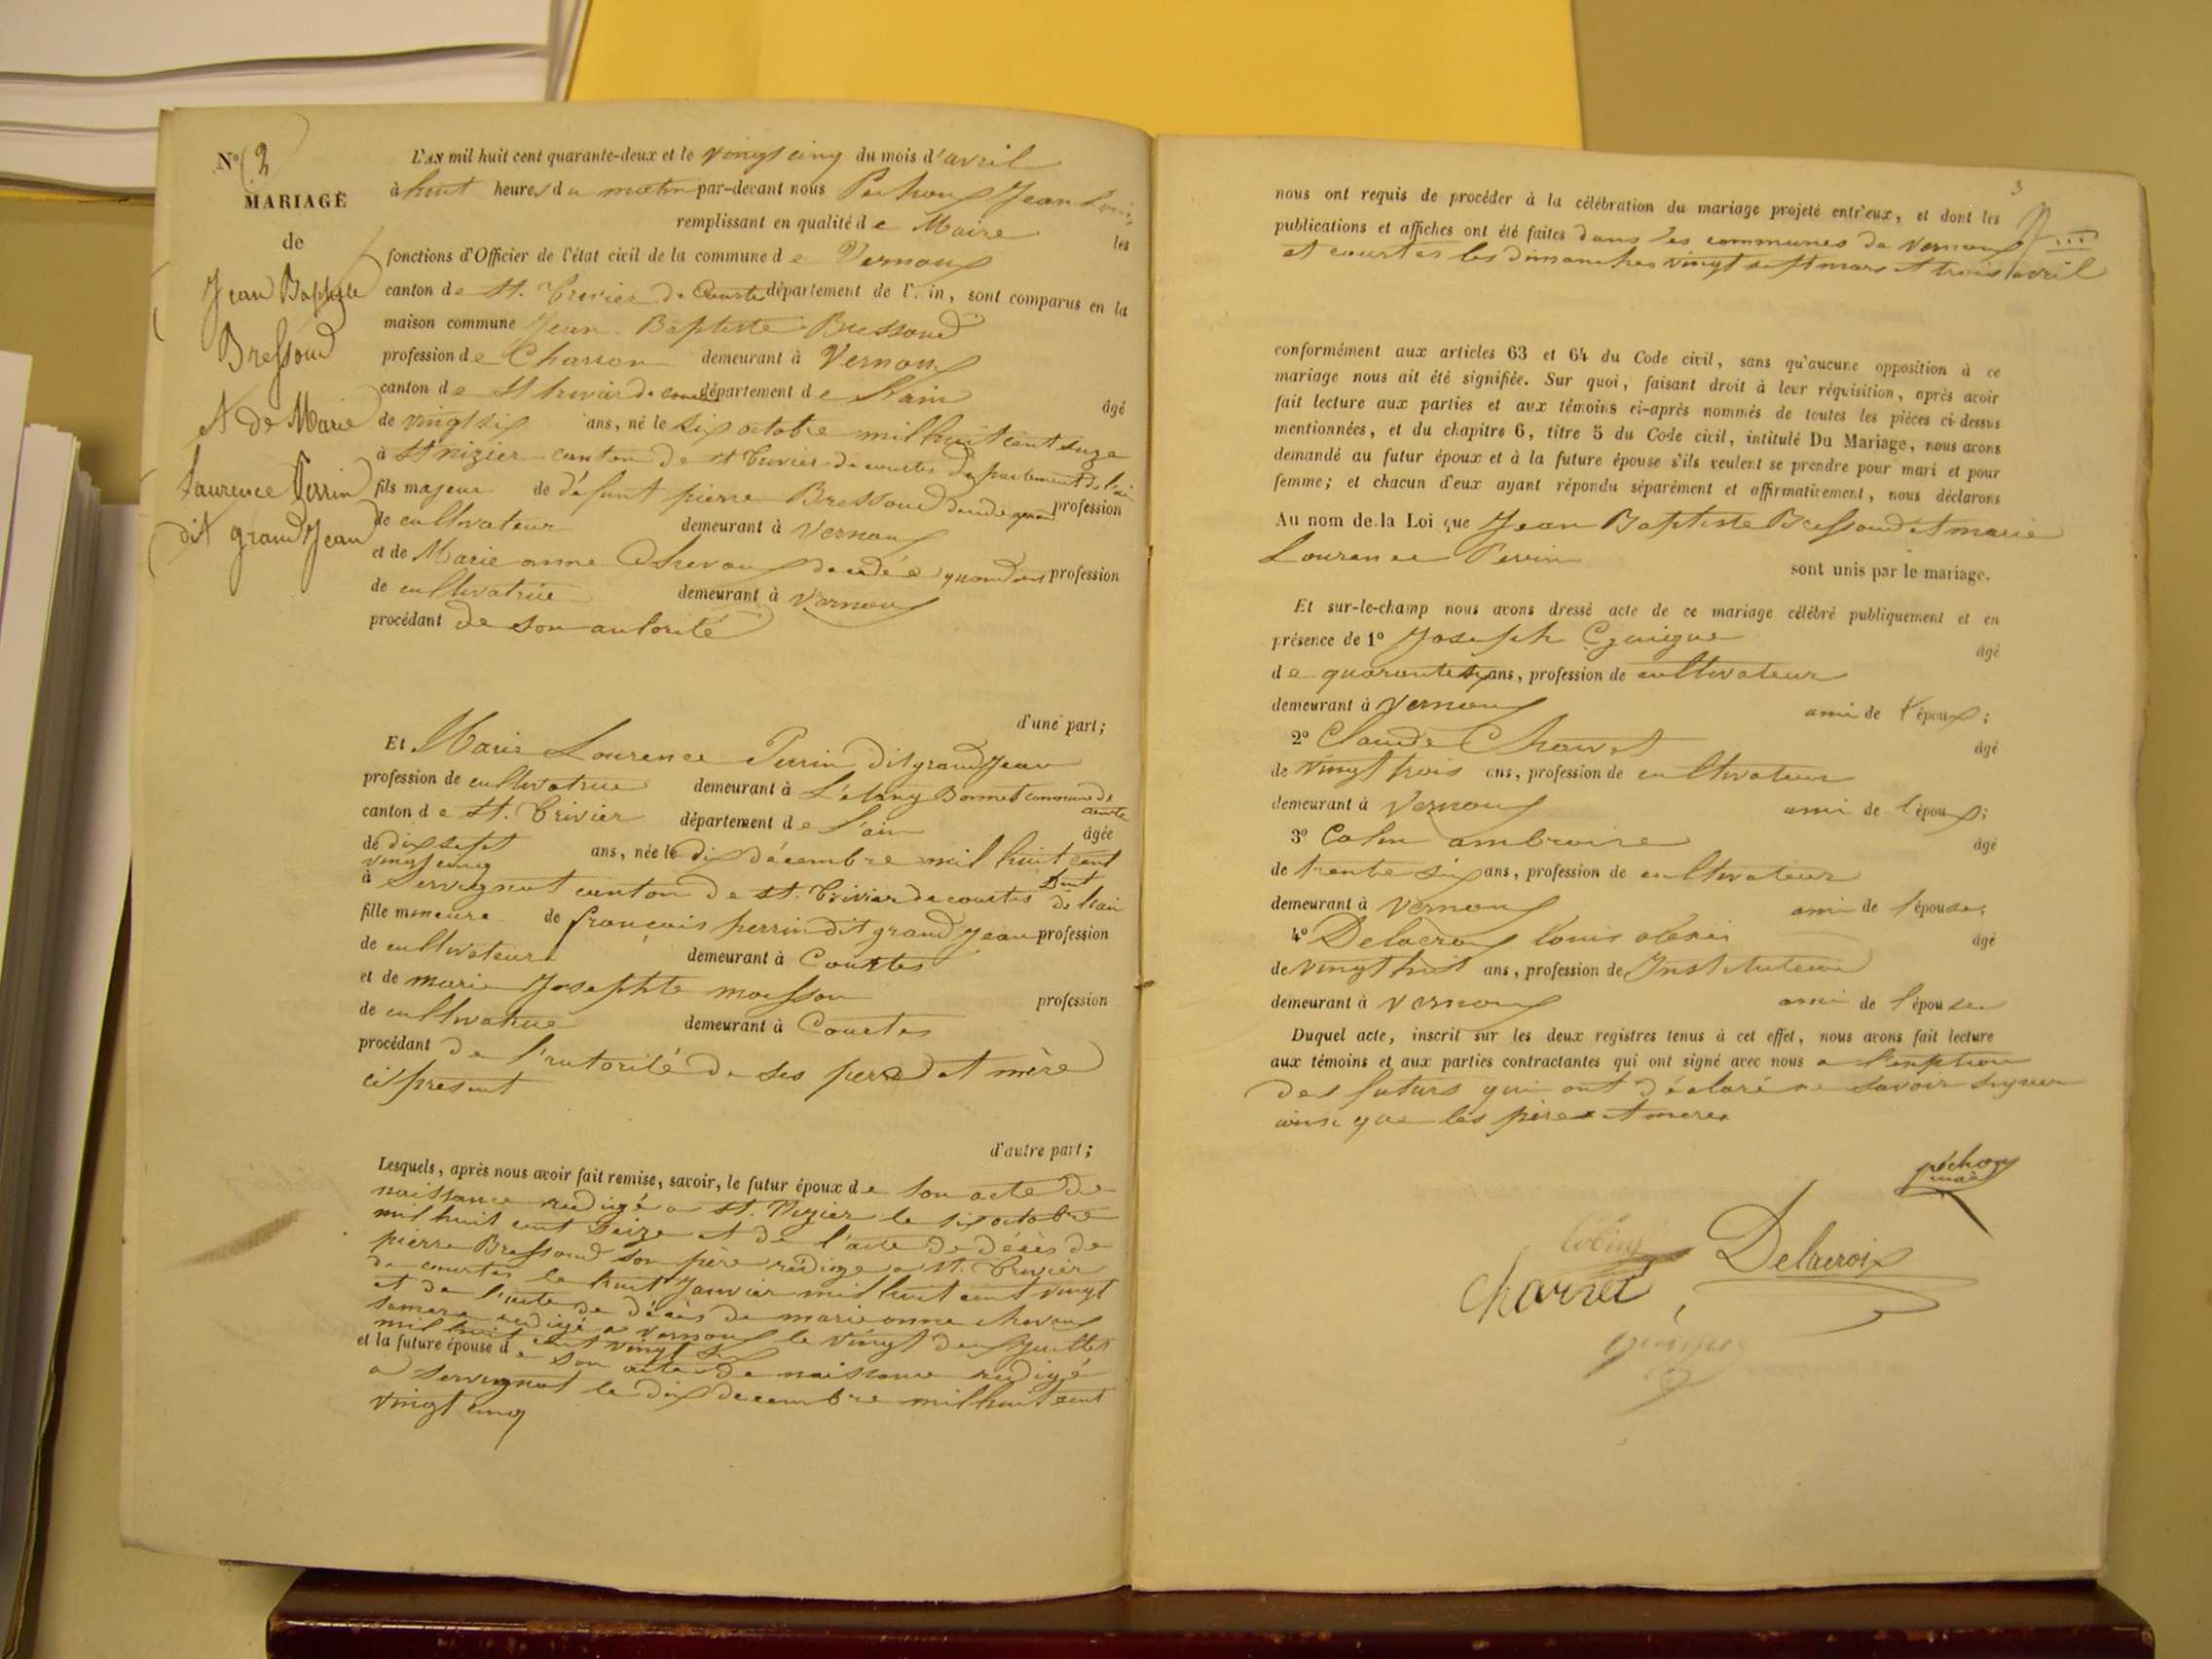 N° 2
MARIAGE
de
Jean Baptiste
Bressoud
et de Marie
Laurence Perrin
dit grand Jean
L'AN mil huit cent quarante-deux et le vingt cinq du mois d'avril
à huit heures du matin par-devant nous Pechoux Jean Louis
remplissant en qualité de Maire les
fonctions d'Officier de l'état civil de la commune de Vernoux
canton de St. Trivier de Courtes département de l'Ain, sont comparus en la
maison commune Jean Baptiste Bressoud
profession de Charron demeurant à Vernoux
canton de St trivier de courtes département de l'ain âgé
de vingt six ans, né le six octobre mil huit cent seize
à St nizier canton de st trivier de courtes département de l'ain
fils majeur de défunt pierre Bressoud profession
de cultivateur demeurant à Vernoux
et de Marie anne Chevaux décédée quand vivait profession
de cultivatrice demeurant à vernoux
procédant de son autorité
d'une part;
Et Marie Lourence Perrin dit grand Jean
profession de cultivatrice demeurant à L'étang Bonnet commune de courtes
canton de St. Trivier département de l'ain âgée
de dix sept ans, née le dix décembre mil huit cent
vingt cinq
à Servignat canton de st. Trivier de courtes Dpt de l'ain
fille mineure de françois perrin dit grand Jean profession
de cultivateur demeurant à Courtes
et de marie Josephte profession
de cultivatrice demeurant à Courtes
procédant de l'autorité de ses pere et mère
ci present
d'autre part;
Lesquels, après nous avoir fait remise, savoir, le futur époux de son acte de
naissance redigé a st. Nizier le six octobre
mil huit cent seize et de l'acte de décès de
pierre Bressoud son père rédigé a st. Trivier
de courtes le huit Janvier mil huit cent vingt
et de l'acte de décès de marie anne chevaux
sa mere redigé a vernoux le vingt deux Juillet
mil huit cent vingt six
et la future épouse de son acte de naissance redigé
a Servignat le dix decembre mil huit cent
vingt cinq
3
nous ont requis de procéder à la célébration du mariage projeté entr'eux, et dont les
publications et affiches ont été faites dans les communes de vernoux
et courtes les dimanches vingt sept mars et trois avril
conformément aux articles 63 et 64 du Code civil, sans qu'aucune opposition à ce
mariage nous ait été signifiée. Sur quoi, faisant droit à leur réquisition, après avoir
fait lecture aux parties et aux témoins ci-après nommés de toutes les pièces ci-dessus
mentionnées, et du chapitre 6, titre 5 du Code civil, intitulé Du Mariage, nous avons
demandé au futur époux et à la future épouse s'ils veulent se prendre pour mari et pour
femme; et chacun d'eux ayant répondu séparément et affirmativement, nous déclarons
Au nom de la Loi que Jean Baptiste Bressoud et marie
Lourence Perrin
sont unis par le mariage.
Et sur-le-champ nous avons dressé acte de ce mariage célébré publiquement et en
présence de 1° Joseph Guigue âgé
de quarante ans, profession de cultivateur
demeurant à Vernoux ami de l'époux;
2° Claude Charvet âgé
de vingt trois ans, profession de cultivateur
demeurant à Vernoux ami de l'époux;
3° Colin ambroise âgé
de trente six ans, profession de cultivateur
demeurant à vernoux ami de l'épouse;
4° Delacroix louis alexis âgé
de vingt huit ans, profession de Instituteur
demeurant à vernoux ami de l'épouse
Duquel acte, inscrit sur les deux registres tenus à cet effet, nous avons fait lecture
aux témoins et aux parties contractantes qui ont signé avec nous a l'exeption
des futurs qui ont déclaré ne savoir signer
ainsi que les père et mere
péchoux
maire
Colin
Delacroix
Charvet